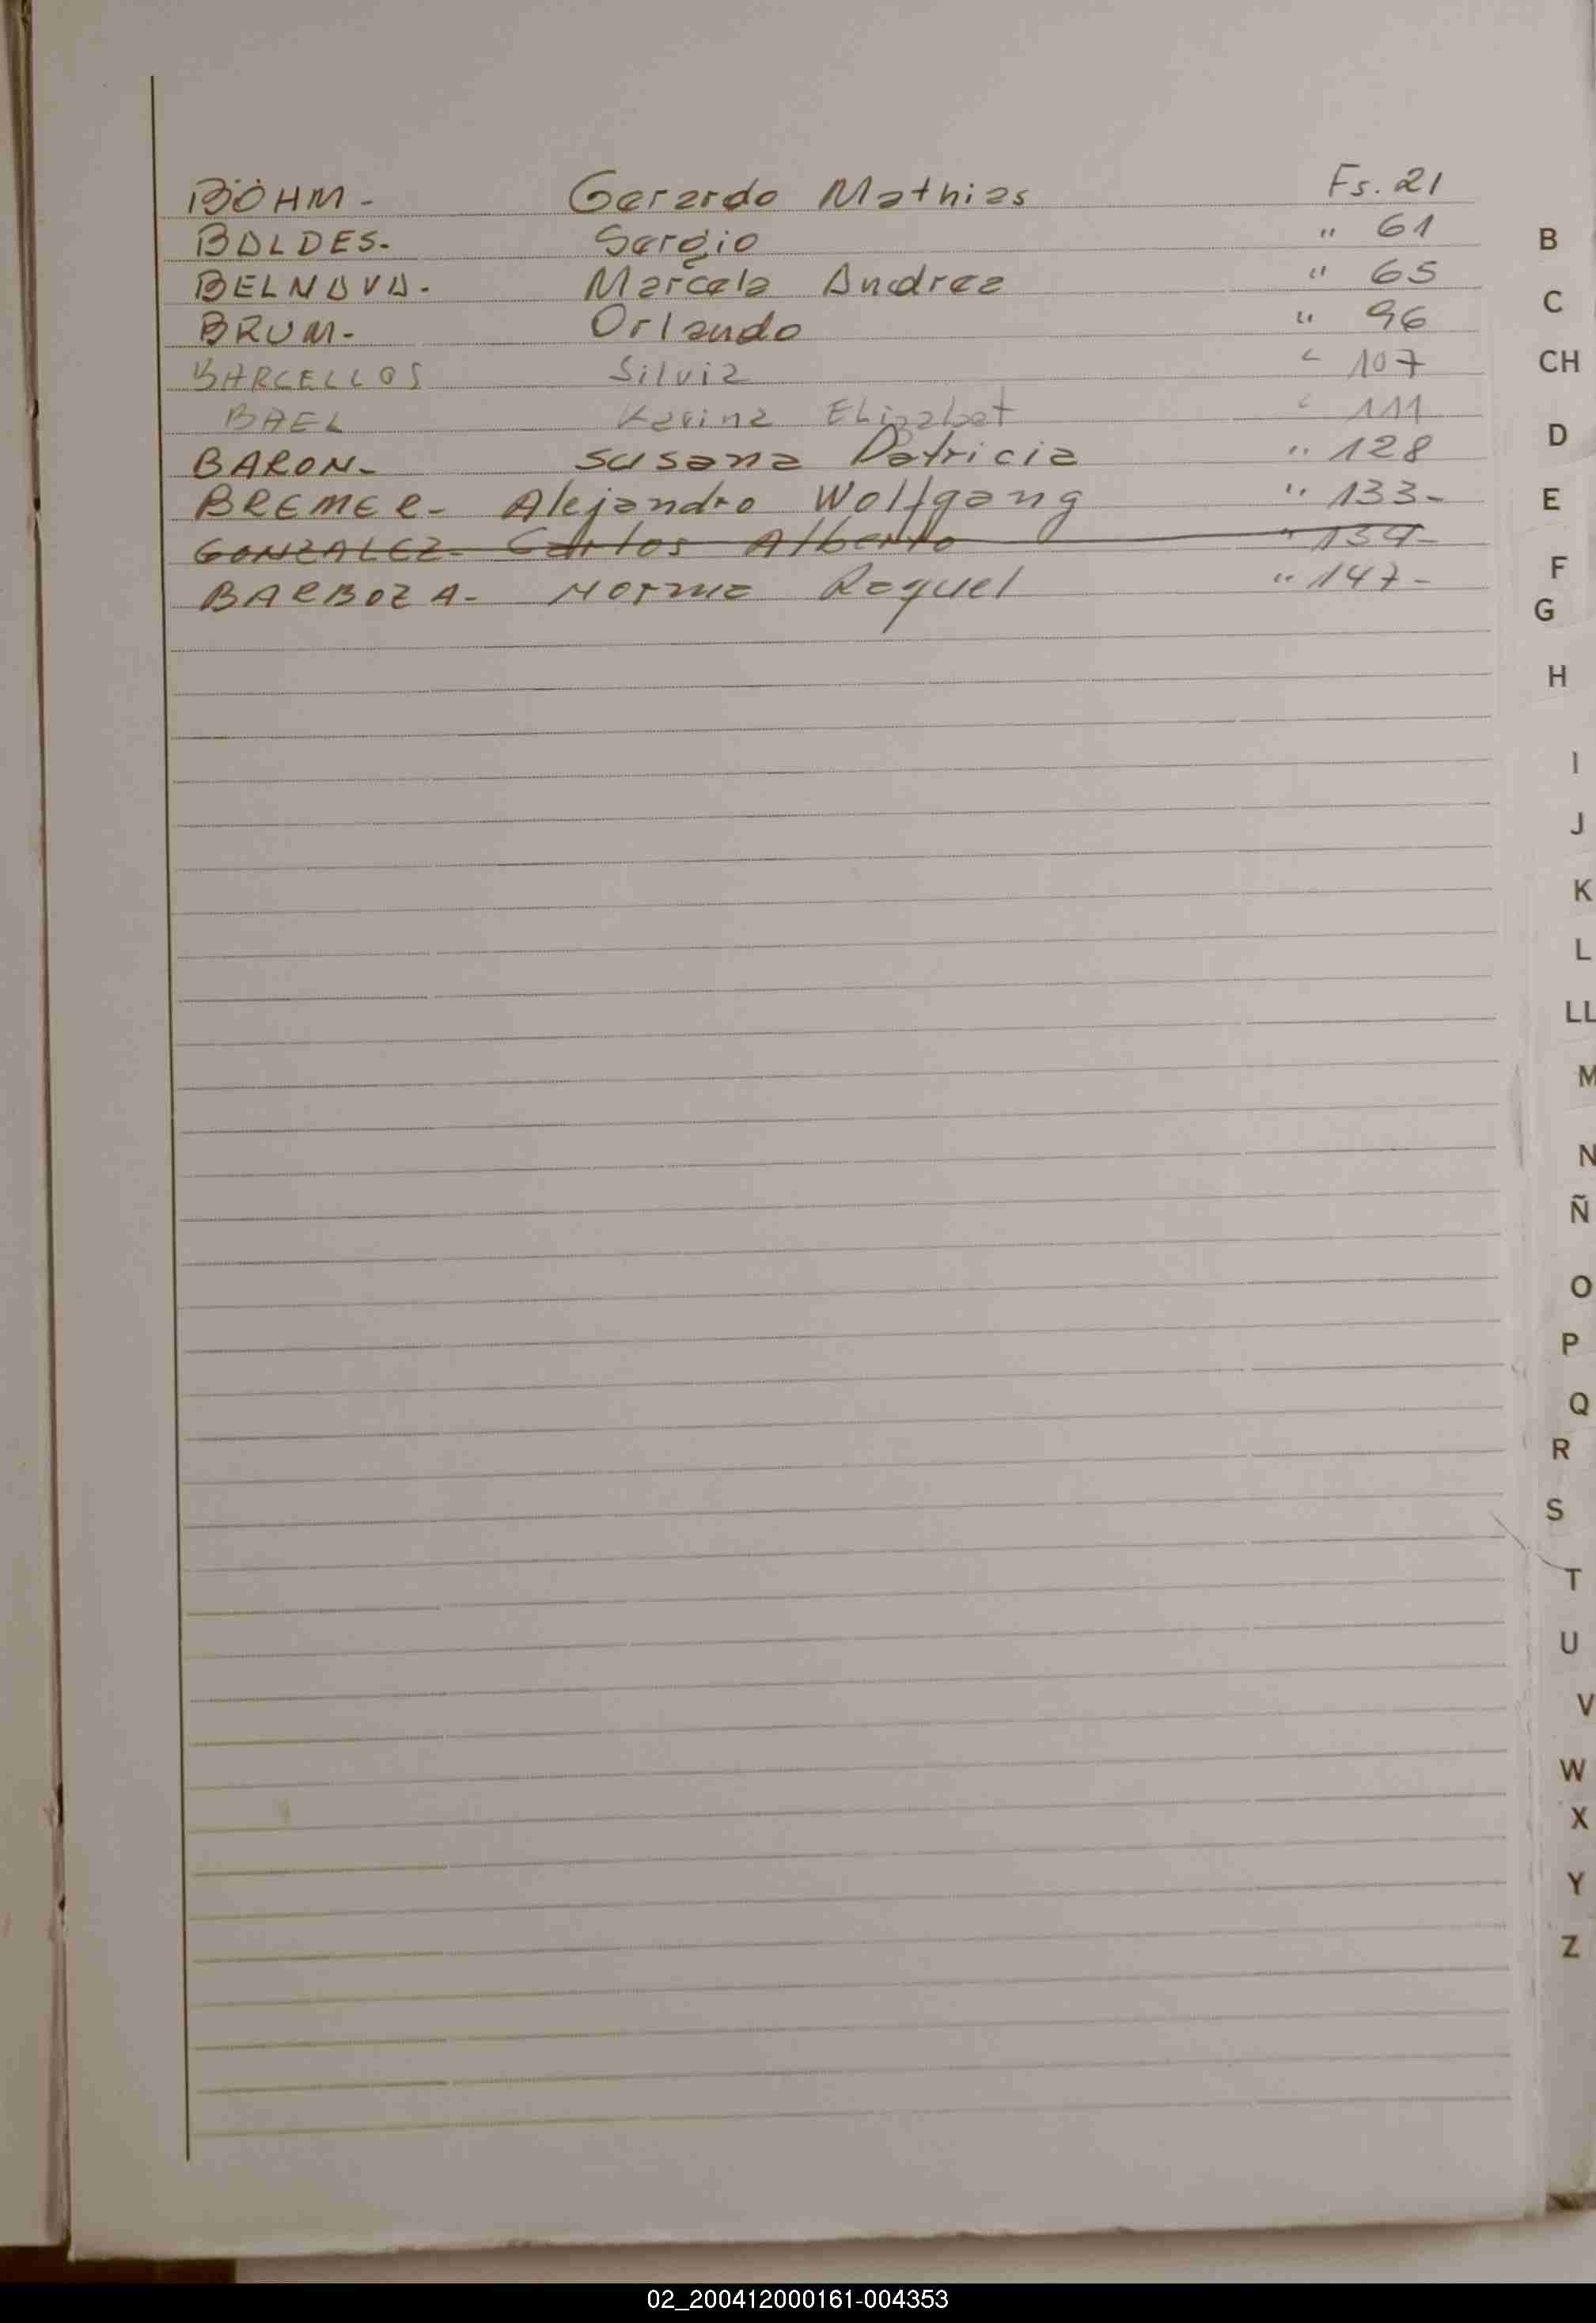 BÖHM- Gerardo Mathias Fs. 21
BALDES- Sergio " 61
BELNAVA- Marcela Andrea " 65
BRUM- Orlando " 96
BARCELLOS Silvia " 107
BAEL Karina Elizabet " 111
BARON- Susana Patricia " 128
BREMER- Alejandro Wolfgang " 133-
GONZALEZ- Carlos Alberto " 139-
BARBOZA- Norma Raquel " 147-
B
C
CH
D
E
F
G
H
I
J
K
L
LL
M
N
Ñ
O
P
Q
R
S
T
U
V
W
X
Y
Z
02_200412000161-004353